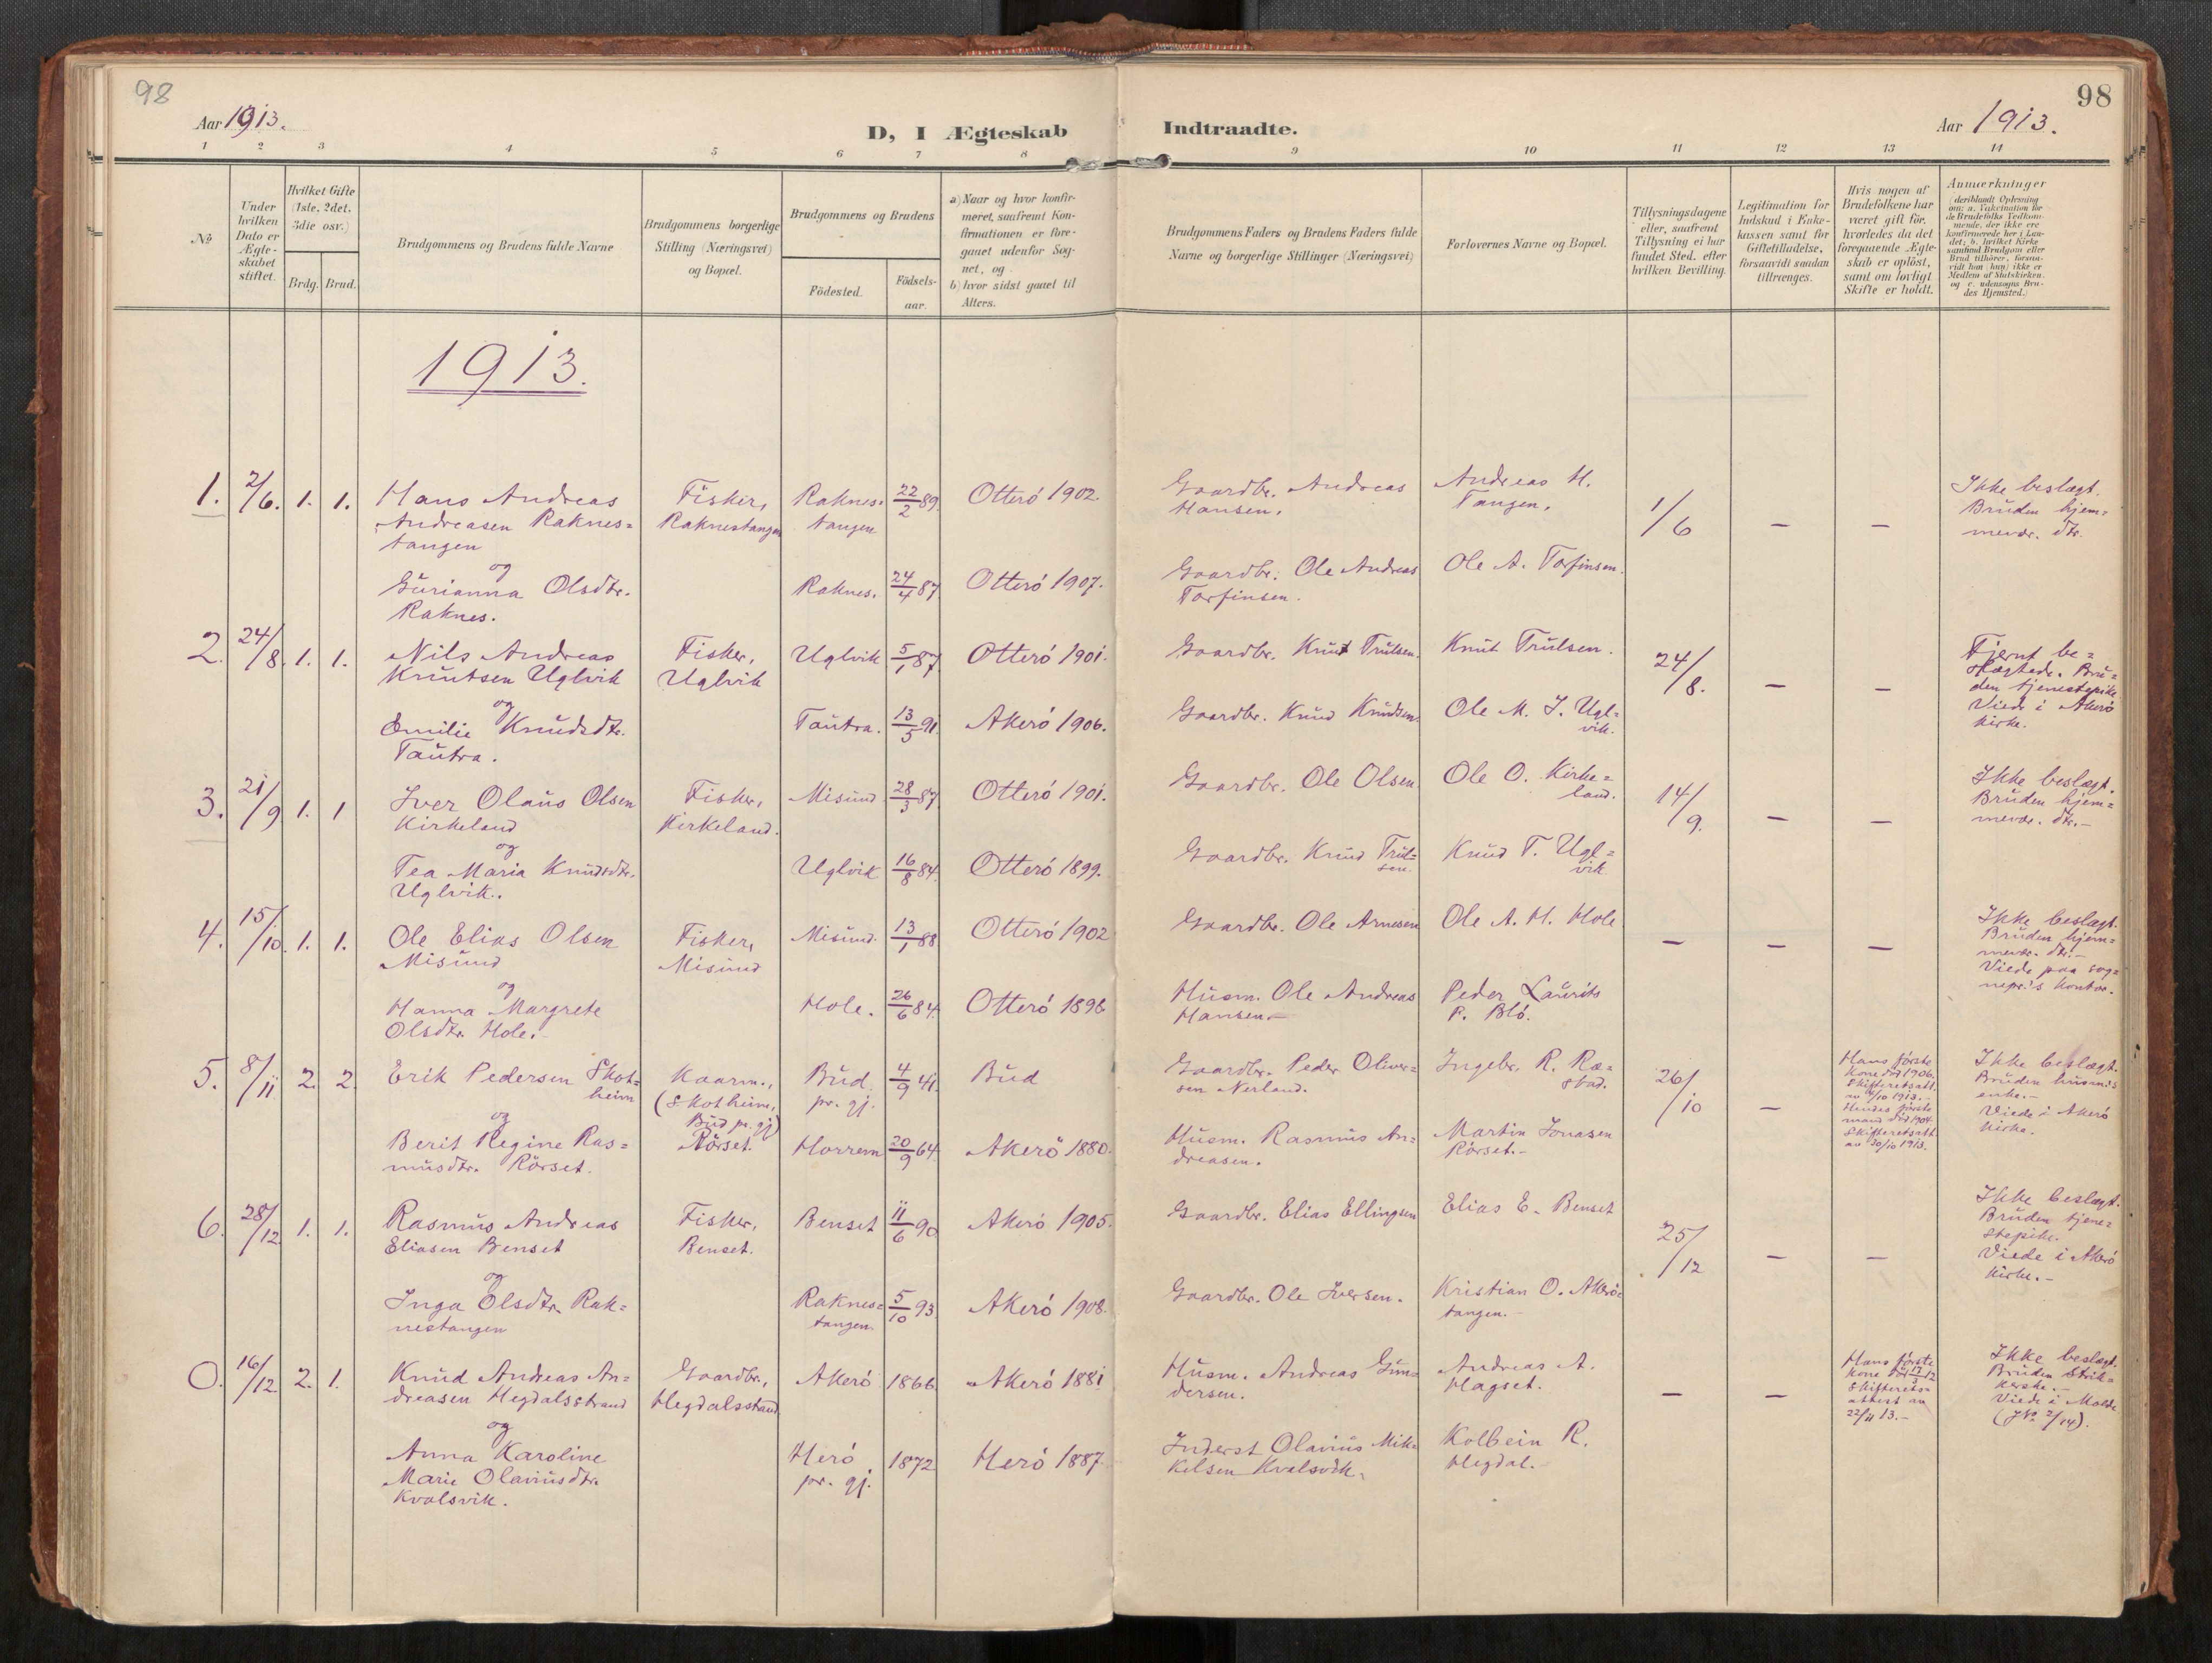 98
98
Aar 1913.
D, I Ægteskab Indtraadte.
Aar 1913.
1 2 3 4 5 6 7 8 9 10 11 12 13 14
No
Under
hvilken
Dato er
Ægte-
skabet
stiftet.
Hvilket Gifte
(1ste, 2det,
3die osv.)
Brdg. Brud.
Brudgommens og Brudens fulde Navne
Brudgommens borgerlige
Stilling (Næringsvei)
og Bopæl.
Brudgommens og Brudens
Födested.
Födsels-
aar.
a) Naar og hvor konfir-
meret, saafremt Kon-
firmationen er fore-
gaaet udenfor Sog-
net, og
b) hvor sidst gaaet til
Alters.
Brudgommens Faders og Brudens Faders fulde
Navne og borgerlige Stillinger (Næringsvei)
Forlovernes Navne og Bopæl.
Tillysningsdagene
eller, saafremt
Tillysning ei har
fundet Sted, efter
hvilken Bevilling.
Legitimation for
Indskud i Enke-
kassen samt for
Giftetilladelse,
forsaavidt saadan
tiltrænges.
Hvis nogen af
Brudefolkene har
været gift för,
hvorledes da det
foregaaende Ægte-
skab er oplöst,
samt om lovligt
Skifte er holdt.
Anmærkninger
(deriblandt Oplysning
om: a. Vakcination for
de Brudefolks Vedkom-
mende, der ikke ere
konfirmerede her i Lan-
det; b. hvilket Kirke-
samfund Brudgom eller
Brud tilhörer, forsaa-
vidt han (hun) ikke er
Medlem af Statskirken,
og c. udensogns Bru-
des Hjemsted.)
1913.
1. 2/6. 1. 1.
Hans Andreas
Andreasen Raknes=
tangen
og
Gurianna Olsdtr.
Raknes.
Fisker,
Raknestangen
Raknes=
tangen
22/2 89.
Otterö 1902.
Raknes. 24/4 87
Otterö 1907.
Gaardbr. Andreas
Hansen.
Gaardbr. Ole Andreas
Torfinsen.
Andreas H.
Tangen.
Ole A. Torfinsen.
1/6 – –
Ikke beslægt.
Bruden hjem=
mevær. dtr.
2. 24/8. 1. 1.
Nils Andreas
Knutsen Uglvik
og
Emilie Knudsdtr.
Tautra.
Fisker,
Uglvik
Uglvik 5/1 87
Otterö 1901.
Tautra. 13/5 91.
Akerö 1906.
Gaardbr. Knut Trulsen.
Gaardbr. Knud Knudsen.
Knut Trulsen.
Ole M. J. Ugl=
vik.
24/8. – –
Fjernt be=
slægtede. Bru=
den tjenestepike
Viede i Akerö
kirke.
3. 21/9 1. 1
Iver Olaus Olsen
Kirkeland
og
Tea Maria Knudsdtr.
Uglvik.
Fisker,
Kirkeland.
Misund 28/3 87
Otterö 1901.
Uglvik 16/8 84.
Otterö 1899.
Gaardbr. Ole Olsen
Gaardbr. Knud Trul=
sen.
Ole O. Kirke=
land.
Knud T. Ugl=
vik
14/9. – –
Ikke beslægt.
Bruden hjem=
mevær. dtr.–
4. 15/10. 1. 1.
Ole Elias Olsen
Misund
og
Hanna Margrete
Olsdtr. Hole.–
Fisker,
Misund
Misund. 13/1 88
Otterö 1902
Hole. 26/6 84.
Otterö 1898
Gaardbr. Ole Arnesen
Husm. Ole Andreas
Hansen.–
Ole A. H. Hole
Peder Laurits
P. Blö.
– – –
Ikke beslægt.
Bruden hjem=
mevær. dtr.–
Viede paa sog=
nepr.'s kontor.
5. 8/11 2. 2.
Erik Pedersen Skot=
heim
og
Berit Regine Ras=
musdtr. Rörset.
Kaarm.,
(Skotheim,
Bud pr. gj.)
Rörset.
Bud
pr. gj.
4/9 41.
Bud
Horrem 20/9 64.
Akerö 1880.
Gaardbr. Peder Oliver=
sen Nerland.
Husm. Rasmus An=
dreasen.
Ingebr. R. Ræ=
stad.
Martin Jonasen
Rörset.–
26/10 –
Hans förste
kone död 1906.
Skifteretsatt.
av 14/10 1913.–
Hendes förste
mand död 1904
Skifteretsatt.
av 30/10 1913.
Ikke beslægt.
Bruden husm.'s
enke.–
Viede i Akerö
kirke.
6. 28/12. 1. 1.
Rasmus Andreas
Eliasen Benset
og
Inga Olsdtr. Rak=
nestangen
Fisker,
Benset.
Benset 11/6 90
Akerö 1905.
Raknes=
tangen.
5/10 93.
Akerö 1908.
Gaardbr. Elias Ellingsen
Gaardbr. Ole Iversen.
Elias E. Benset
Kristian O. Akerö=
tangen.–
25/12 – –
Ikke beslægt.
Bruden tjene=
stepike.
Viede i Akerö
kirke.–
0. 16/12. 2. 1.
Knud Andreas An=
dreasen Hegdalsstrand
og
Anna Karoline
Marie Olaviusdtr.
Kvalsvik.
Gaardbr.,
Hegdalsstrand
Akerö 1866
Akerö 1881
Herö
pr. gj.
1872
Herö 1887
Husm. Andreas Gun=
dersen.
Inderst Olavius Mik=
kelsen Kvalsvik.
Andreas A.
Hagset.
Kolbein R.
Hegdal.–
– –
Hans förste
kone död 17/3 12
Skifterets=
attest av
22/11 13.–
Ikke beslægt.
Bruden strik=
kerske.–
Viede i Molde
(J.No 2/14).